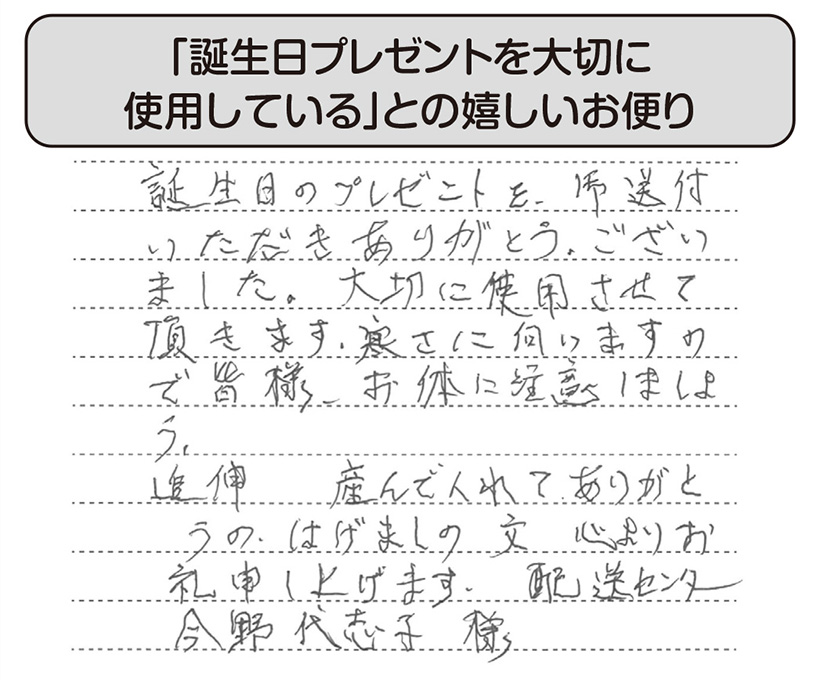 「誕生日プレゼントを大切に
使用している」との嬉しいお便り
誕生日のプレゼントを、御送付
いただきありがとう、ござい
ました。大切に使用させて
頂きます、寒さに向いますの
で皆様、お体に注意しましょ
う。
追伸 産んで入れてありがと
うの、はげましの文 心よりお
礼申し上げます、 配送センター
今野代志子 様